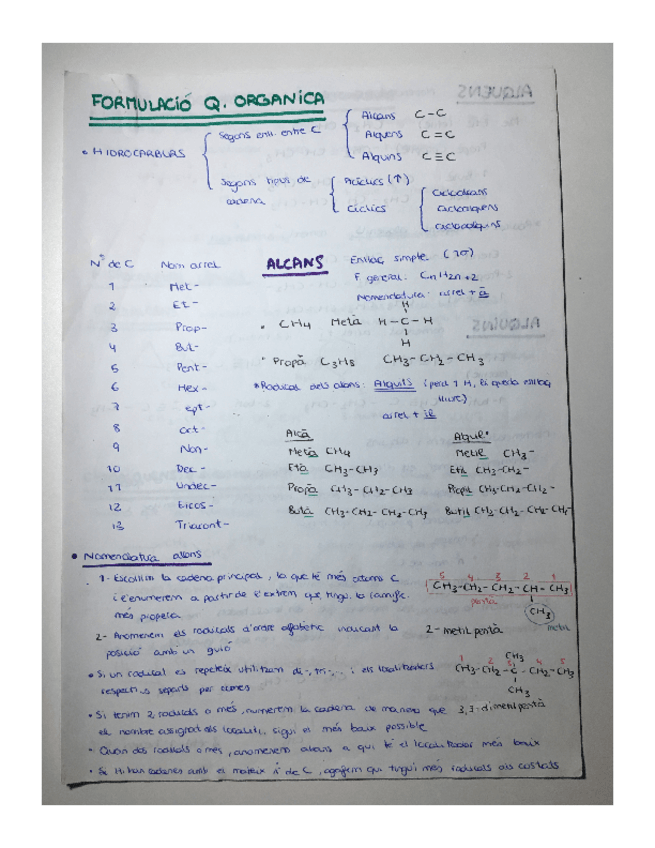 FORMULACIÓ Q. ORGANICA
• HIDROCARBURS
Segons enll. entre C
Alcans C-C
Alquens C=C
Alquins C≡C
Segons tipus de cadena
Acíclics (↑)
Cíclics
Cicloalcans
Cicloalquens
Cicloalquins
Nº de C Nom arrel
1 Met-
2 Et-
3 Prop-
4 But-
5 Pent-
6 Hex-
7 Ept-
8 Oct-
9 Non-
10 Dec-
11 Undec-
12 Eicos-
13 Triacont-
ALCANS
Enllaç simple
F. general: CnH2n+2
Nomenclatura: arrel + à
• CH4 Metà
H
H-C-H
H
• Propà C3H8 CH3-CH2-CH3
• Radicals dels alcans: Alquils (perd 1 H, li queda enllaç lliure)
arrel + il
Alcà
Metà CH4
Età CH3-CH3
Propà CH3-CH2-CH3
Butà CH3-CH2-CH2-CH3
Alquil
Metil CH3-
Etil CH3-CH2-
Propil CH3-CH2-CH2-
Butil CH3-CH2-CH2-CH2-
• Nomenclatura alcans
1- Escollim la cadena principal, la que té més àtoms C
i l'enumerem a partir de l'extrem que tingui la ramific.
més propera
5 4 3 2 1
CH3-CH2-CH2-CH-CH3
pentà
CH3
metil
2- Anomenem els radicals d'ordre alfabètic indicant la
posició amb un guió
2-metilpentà
• Si un radical es repeteix utilitzem di-, tri-, ... i els localitzadors
respectius separats per comes
CH3
1 2 3 4 5
CH3-CH2-C-CH2-CH3
CH3
3,3-dimetilpentà
• Si tenim 2 radicals o més, numerem la cadena de manera que
el nombre assignat als localitz. sigui el més baix possible
• Quan dos radicals o més, anomenem abans a qui té el localitzador més baix
• Si hi han cadenes amb el mateix nº de C, agafem qui tingui més radicals als costats
ALQUENS
ALQUINS